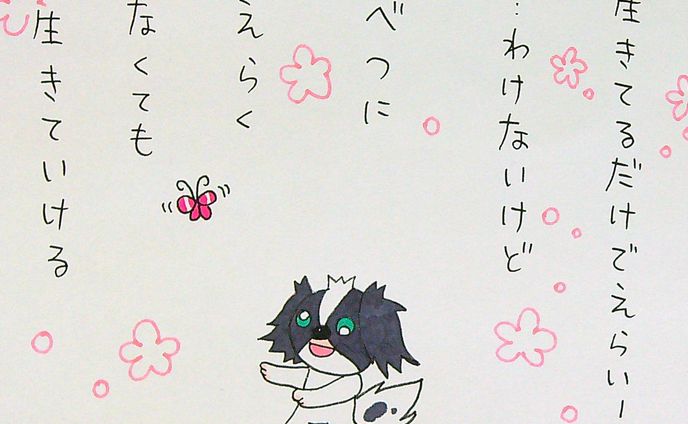 生きてるだけでえらいー
…わけないけど
べつに
えらく
なくても
生きていける